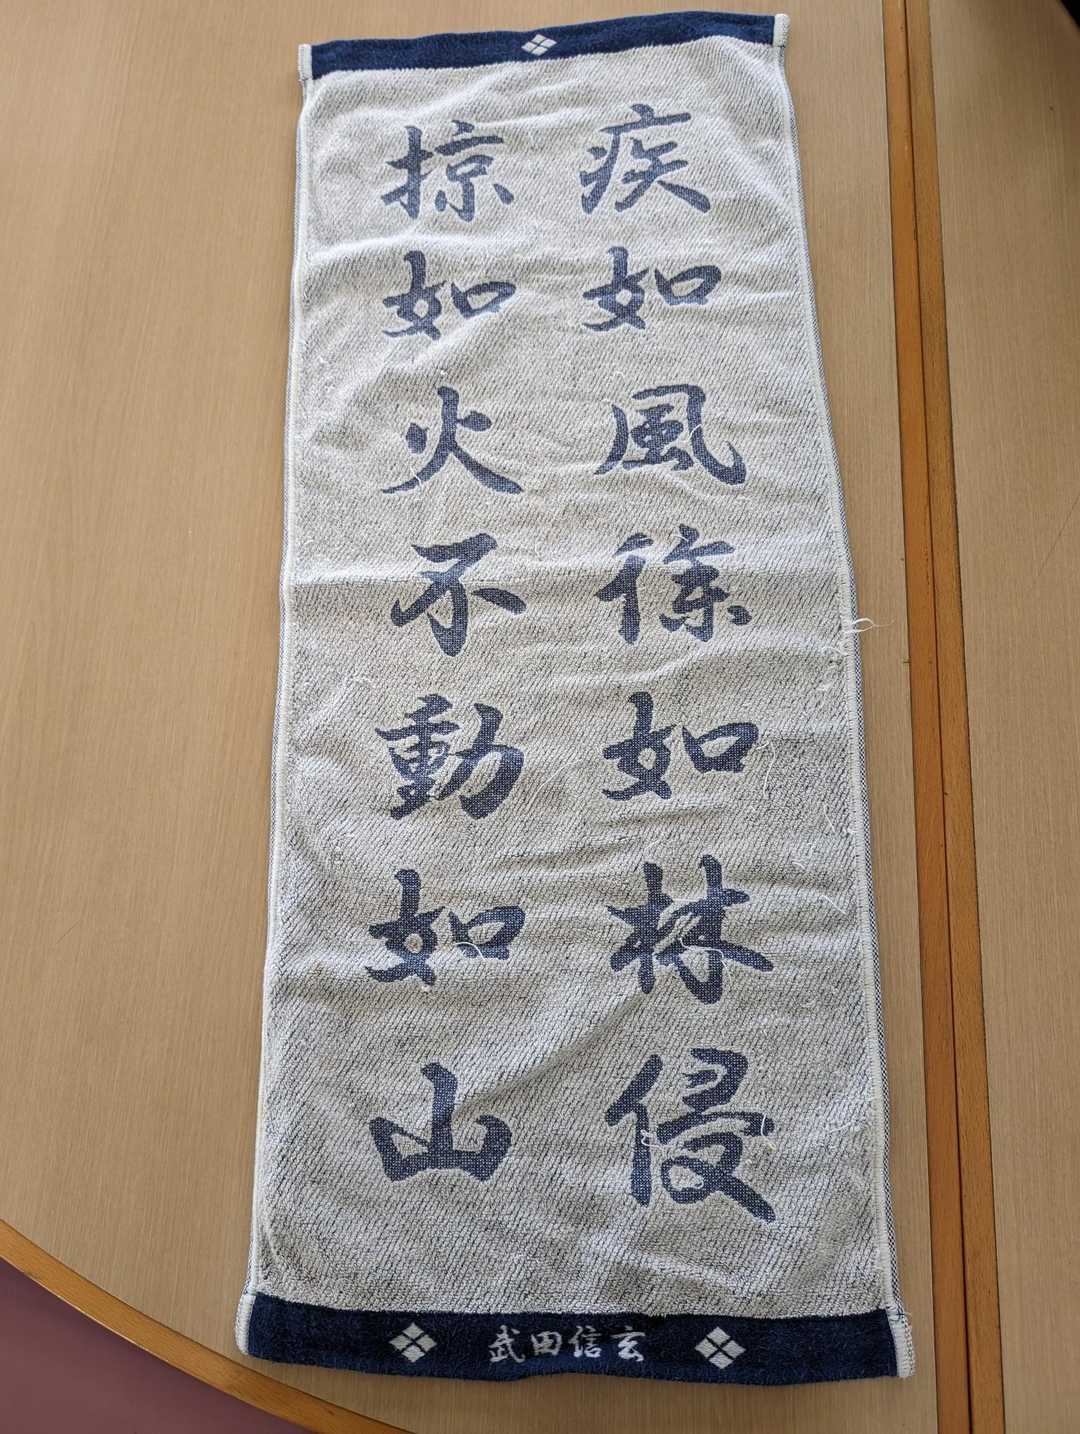 疾如風徐如林侵
掠如火不動如山
武田信玄